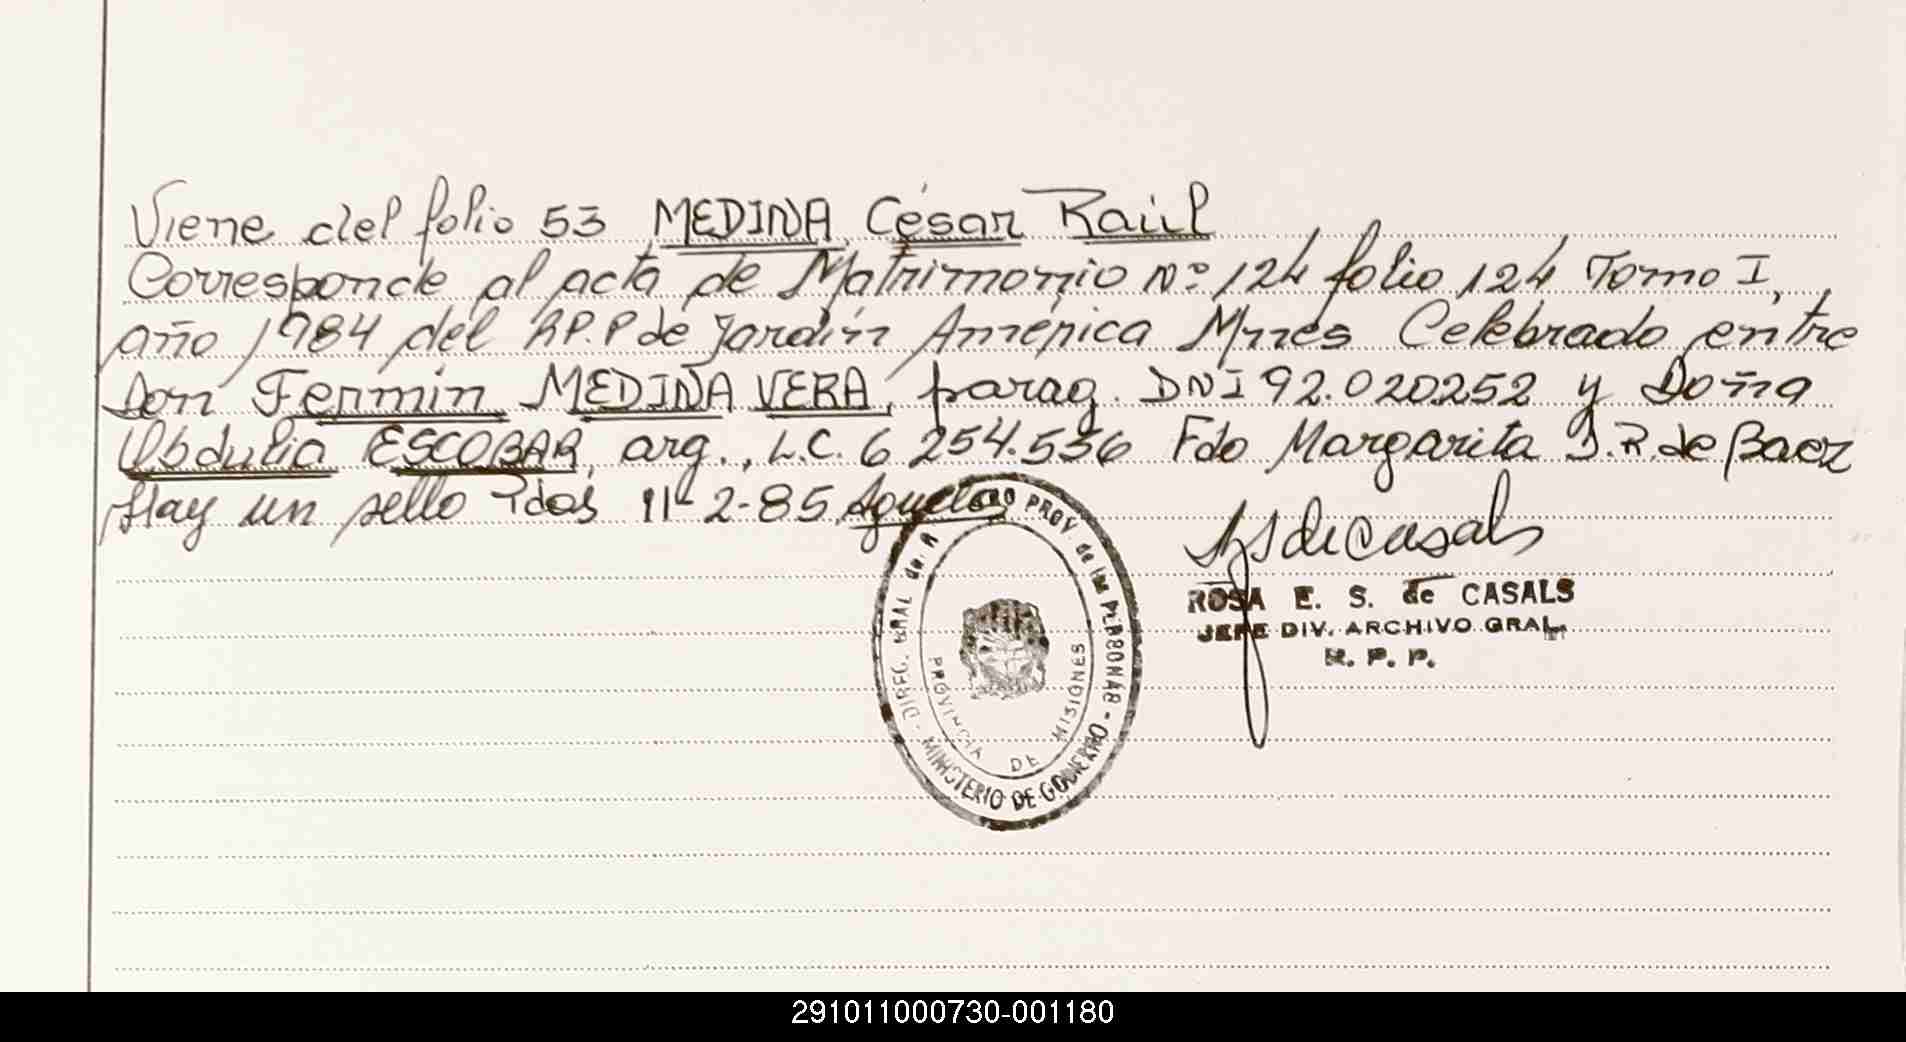 Viene del folio 53 MEDINA César Raúl
Corresponde al acta de Matrimonio Nº 124 folio 124 Tomo I,
año 1984 del R.P.P de Jardín América Mnes Celebrado entre
Don Fermin MEDINA VERA, parag. DNI 92.020252 y Doña
Obdulia ESCOBAR, arg., L.C. 6 254.536 Fdo Margarita J.R. de Baez
Hay un sello Pdas 11-2-85
DIREC. GRAL de PROV. de las PERSONAS - MINISTERIO DE GOBIERNO -
PROVINCIA DE MISIONES
ROSA E. S. de CASALS
JEFE DIV. ARCHIVO GRAL.
R. P. P.
291011000730-001180